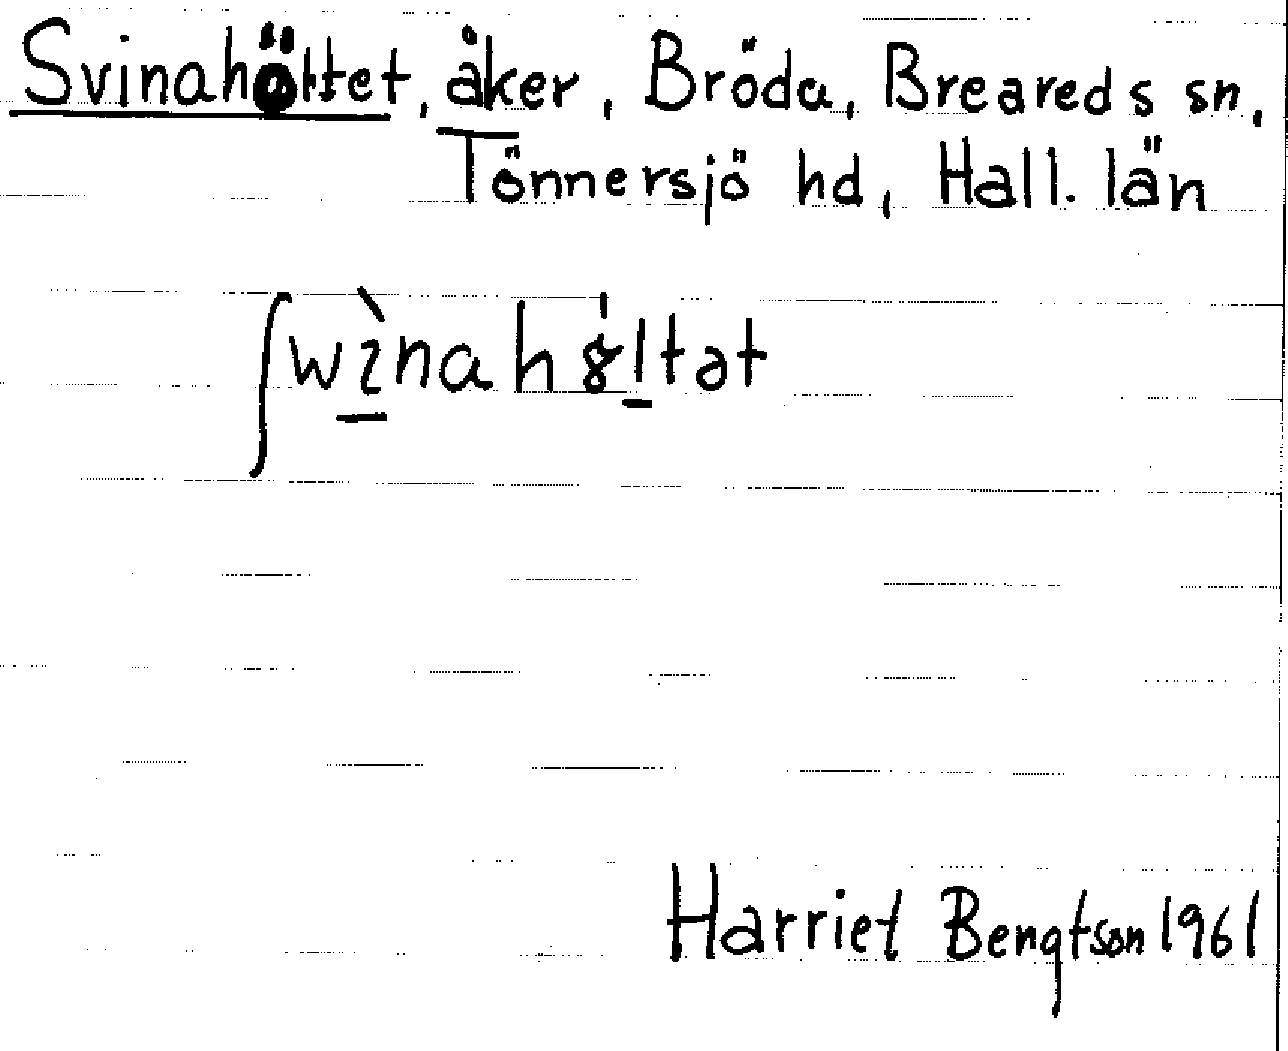 Svinahöltet, åker, Bröda, Breareds sn,
Tönnersjö hd, Hall. län
ʃwìnahöltət
Harriet Bengtson 1961